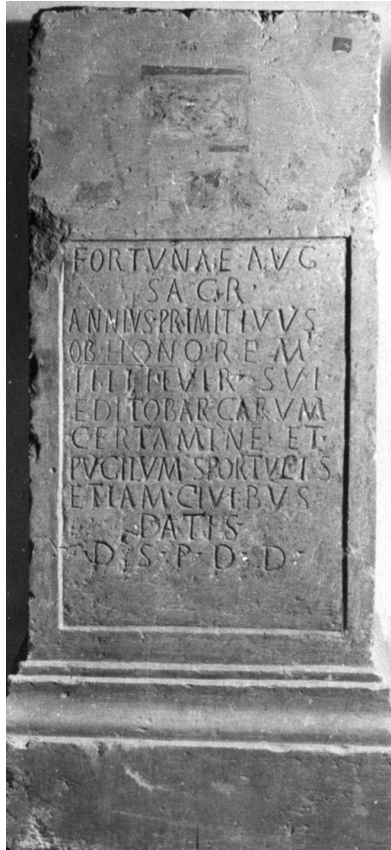 FORTVNAE·AVG
SACR·
ANNIVS·PRIMITIVVS
OB·HONOREM
IIIIIIVIR· SVI
EDITO BARCARVM
CERTAMINE· ET·
PVGILVM SPORTVLIS
ETIAM·CIVIBVS
DATIS
D·S·P·D·D·